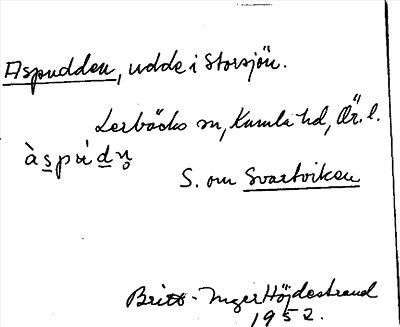 Aspudden, udde i Storsjön.
Lerbäcks sn, Kumla hd, Ör. l.
às̲pú̀d̲n̥
S. om Svartviken
Britt-Inger Höjdestrand
1952.